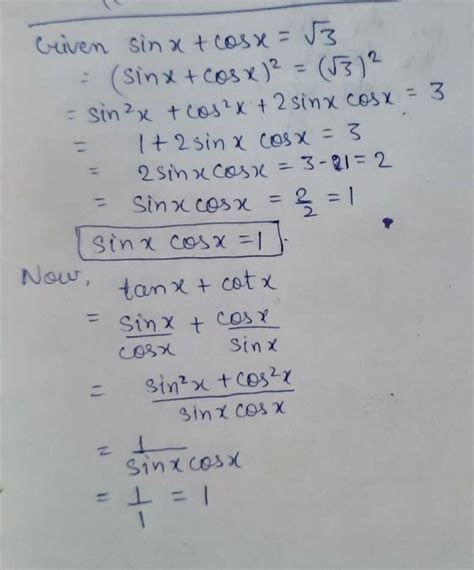 Given sinx + cosx = √3
= (sinx + cosx)² = (√3)²
= sin²x + cos²x + 2sinx cosx = 3
= 1 + 2sinx cosx = 3
= 2sinx cosx = 3 - 1 = 2
= sinx cosx = 2/2 = 1
sinx cosx = 1.
Now, tanx + cotx
= sinx/cosx + cosx/sinx
= sin²x + cos²x/sinx cosx
= 1/sinx cosx
= 1/1 = 1